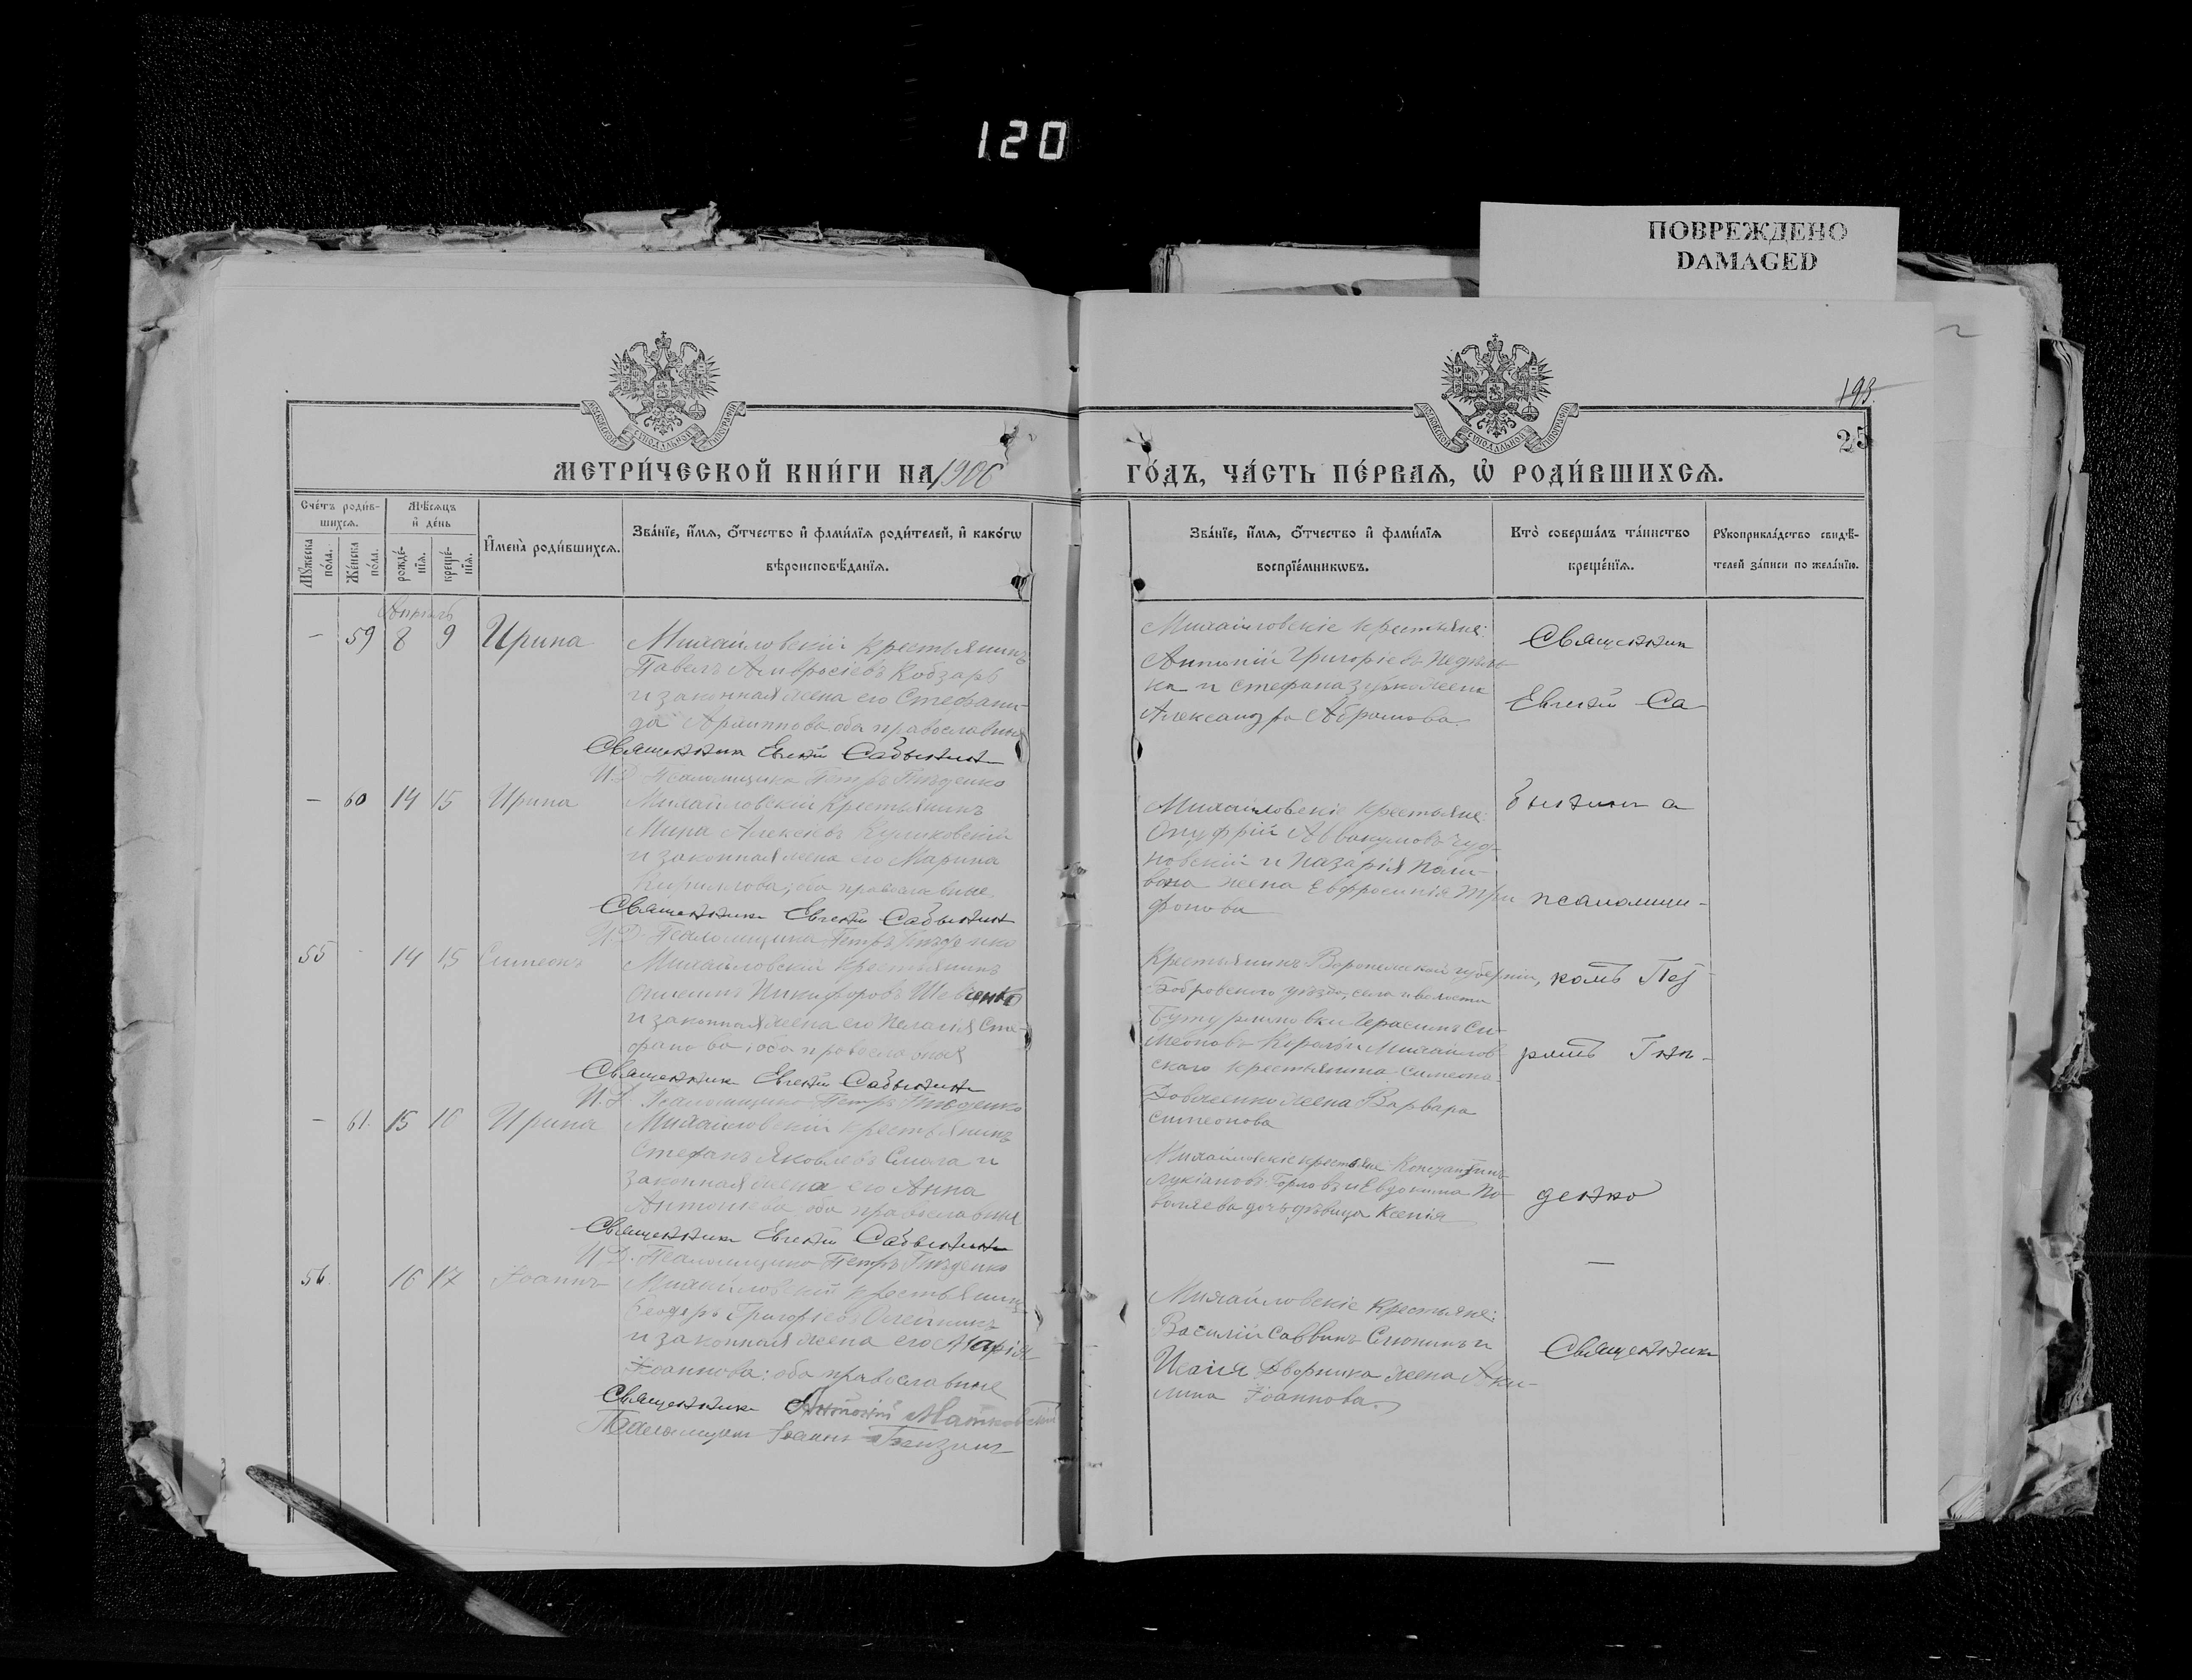 120
ПОВРЕЖДЕНО
DAMAGED
МОСКОВСКОЙ СѴНОДАЛЬНОЙ ТИПОГРАФІИ
МОСКОВСКОЙ СѴНОДАЛЬНОЙ ТИПОГРАФІИ
193.
25
МЕТРИ́ЧЕСКОЙ КНИ́ГИ НА 1906
ГО́ДЪ, ЧА́СТЬ ПЕ́РВАѦ, Ѽ РОДИ́ВШИХСѦ.
Сче́тъ роди́в-
шихсѧ.
Мꙋжеска по́ла.
Же́нска по́ла.
Мѣ́сѧцъ
и҆ де́нь
рожде́-
нїѧ.
креще́-
нїѧ.
И҆мена̀ роди́вшихсѧ.
Зва́нїе, и҆́мѧ, ѻ҆́тчество и҆ фами́лїѧ роди́телей, и҆ како́гѡ
вѣроисповѣ́данїѧ.
Зва́нїе, и҆́мѧ, ѻ҆́тчество и҆ фами́лїѧ
воспрїе́мникѡвъ.
Кто̀ соверша́лъ та́инство
креще́нїѧ.
Рꙋкоприкла́дство свидѣ́-
телей за́писи по жела́нїю.
Апрѣль
— 59 8 9 Ирина
Михайловскій крестьянинъ
Павелъ Амвросіевъ Кобзарь
и законная жена его Стефани-
да Архиппова оба православные
Священникъ Евгеній
И.Д. Псаломщика Петръ Гнѣденко
Михайловскіе крестьяне:
Антоній Григоріевъ
ка и Стефана жена
Александра Абрамова
Священник
Евгеній Са
— 60 14 15 Ирина
Михайловскій крестьянинъ
Мина Алексѣевъ Куликовскій
и законная жена его Марина
Кириллова; оба православные
Священникъ Евгеній
И.Д. Псаломщика Петръ Гнѣденко
Михайловскіе крестьяне:
Онуфрій Аввакумовъ Чуд-
новскій и Назарія Пали-
жена Евфросинія Три
фонова
псаломщи-
55 - 14 15 Симеонъ
Михайловскій крестьянинъ
Никифоровъ Шевченко
и законная жена его Пелагія Сте-
фанова; оба православныя
Священникъ Евгеній
И.Д. Псаломщика Петръ Гнѣденко
Крестьянинъ Воронежской губерніи,
Бобровского уѣзда, села и волости
Бутурлиновки Герасимъ Си-
меоновъ Король и Михайлов-
скаго крестьянина Симеона
Довженко жена Варвара
Симеонова
комъ Пет
ромъ Гнѣ-
— 61. 15 16 Ирина
Михайловскій крестьянинъ
Стефанъ Яковлевъ Смола и
законная жена его Анна
Антониева оба православные
Священникъ Евгеній
И.Д. Псаломщика Петръ Гнѣденко
Михайловскіе крестьяне Константинъ
Лукіановъ Горловъ и Евдокима По-
воляева дочь дѣвица Ксенія
денко
—
56. 16 17 Іоаннъ
Михайловскій крестьянинъ
Ѳеодоръ Григоріевъ Олейникъ
и законная жена его Марія
Іоаннова: оба православные
Священникъ Антоній
Псаломщикъ Іоаннъ
Михайловскіе крестьяне:
Василій Саввинъ и
Исаія Дворника жена Аки-
лина Іоаннова.
Священникъ